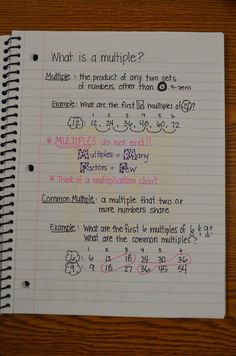 What is a multiple?
Multiple: the product of any two sets
of numbers other than 0 ← zero
Example: What are the first 6 multiples of 12?
1 2 3 4 5 6
12 12, 24, 36, 48, 60, 72
* MULTIPLES do not end!!
Multiples = Many
Factors = Few
* Think of a multiplication chart
Common Multiple: a multiple that two or
more numbers share
Example: What are the first 6 multiples of 6 & 9?
What are the common multiples?
1 2 3 4 5 6
6 6 12 18 24 30 36
9 9 18 27 36 45 54